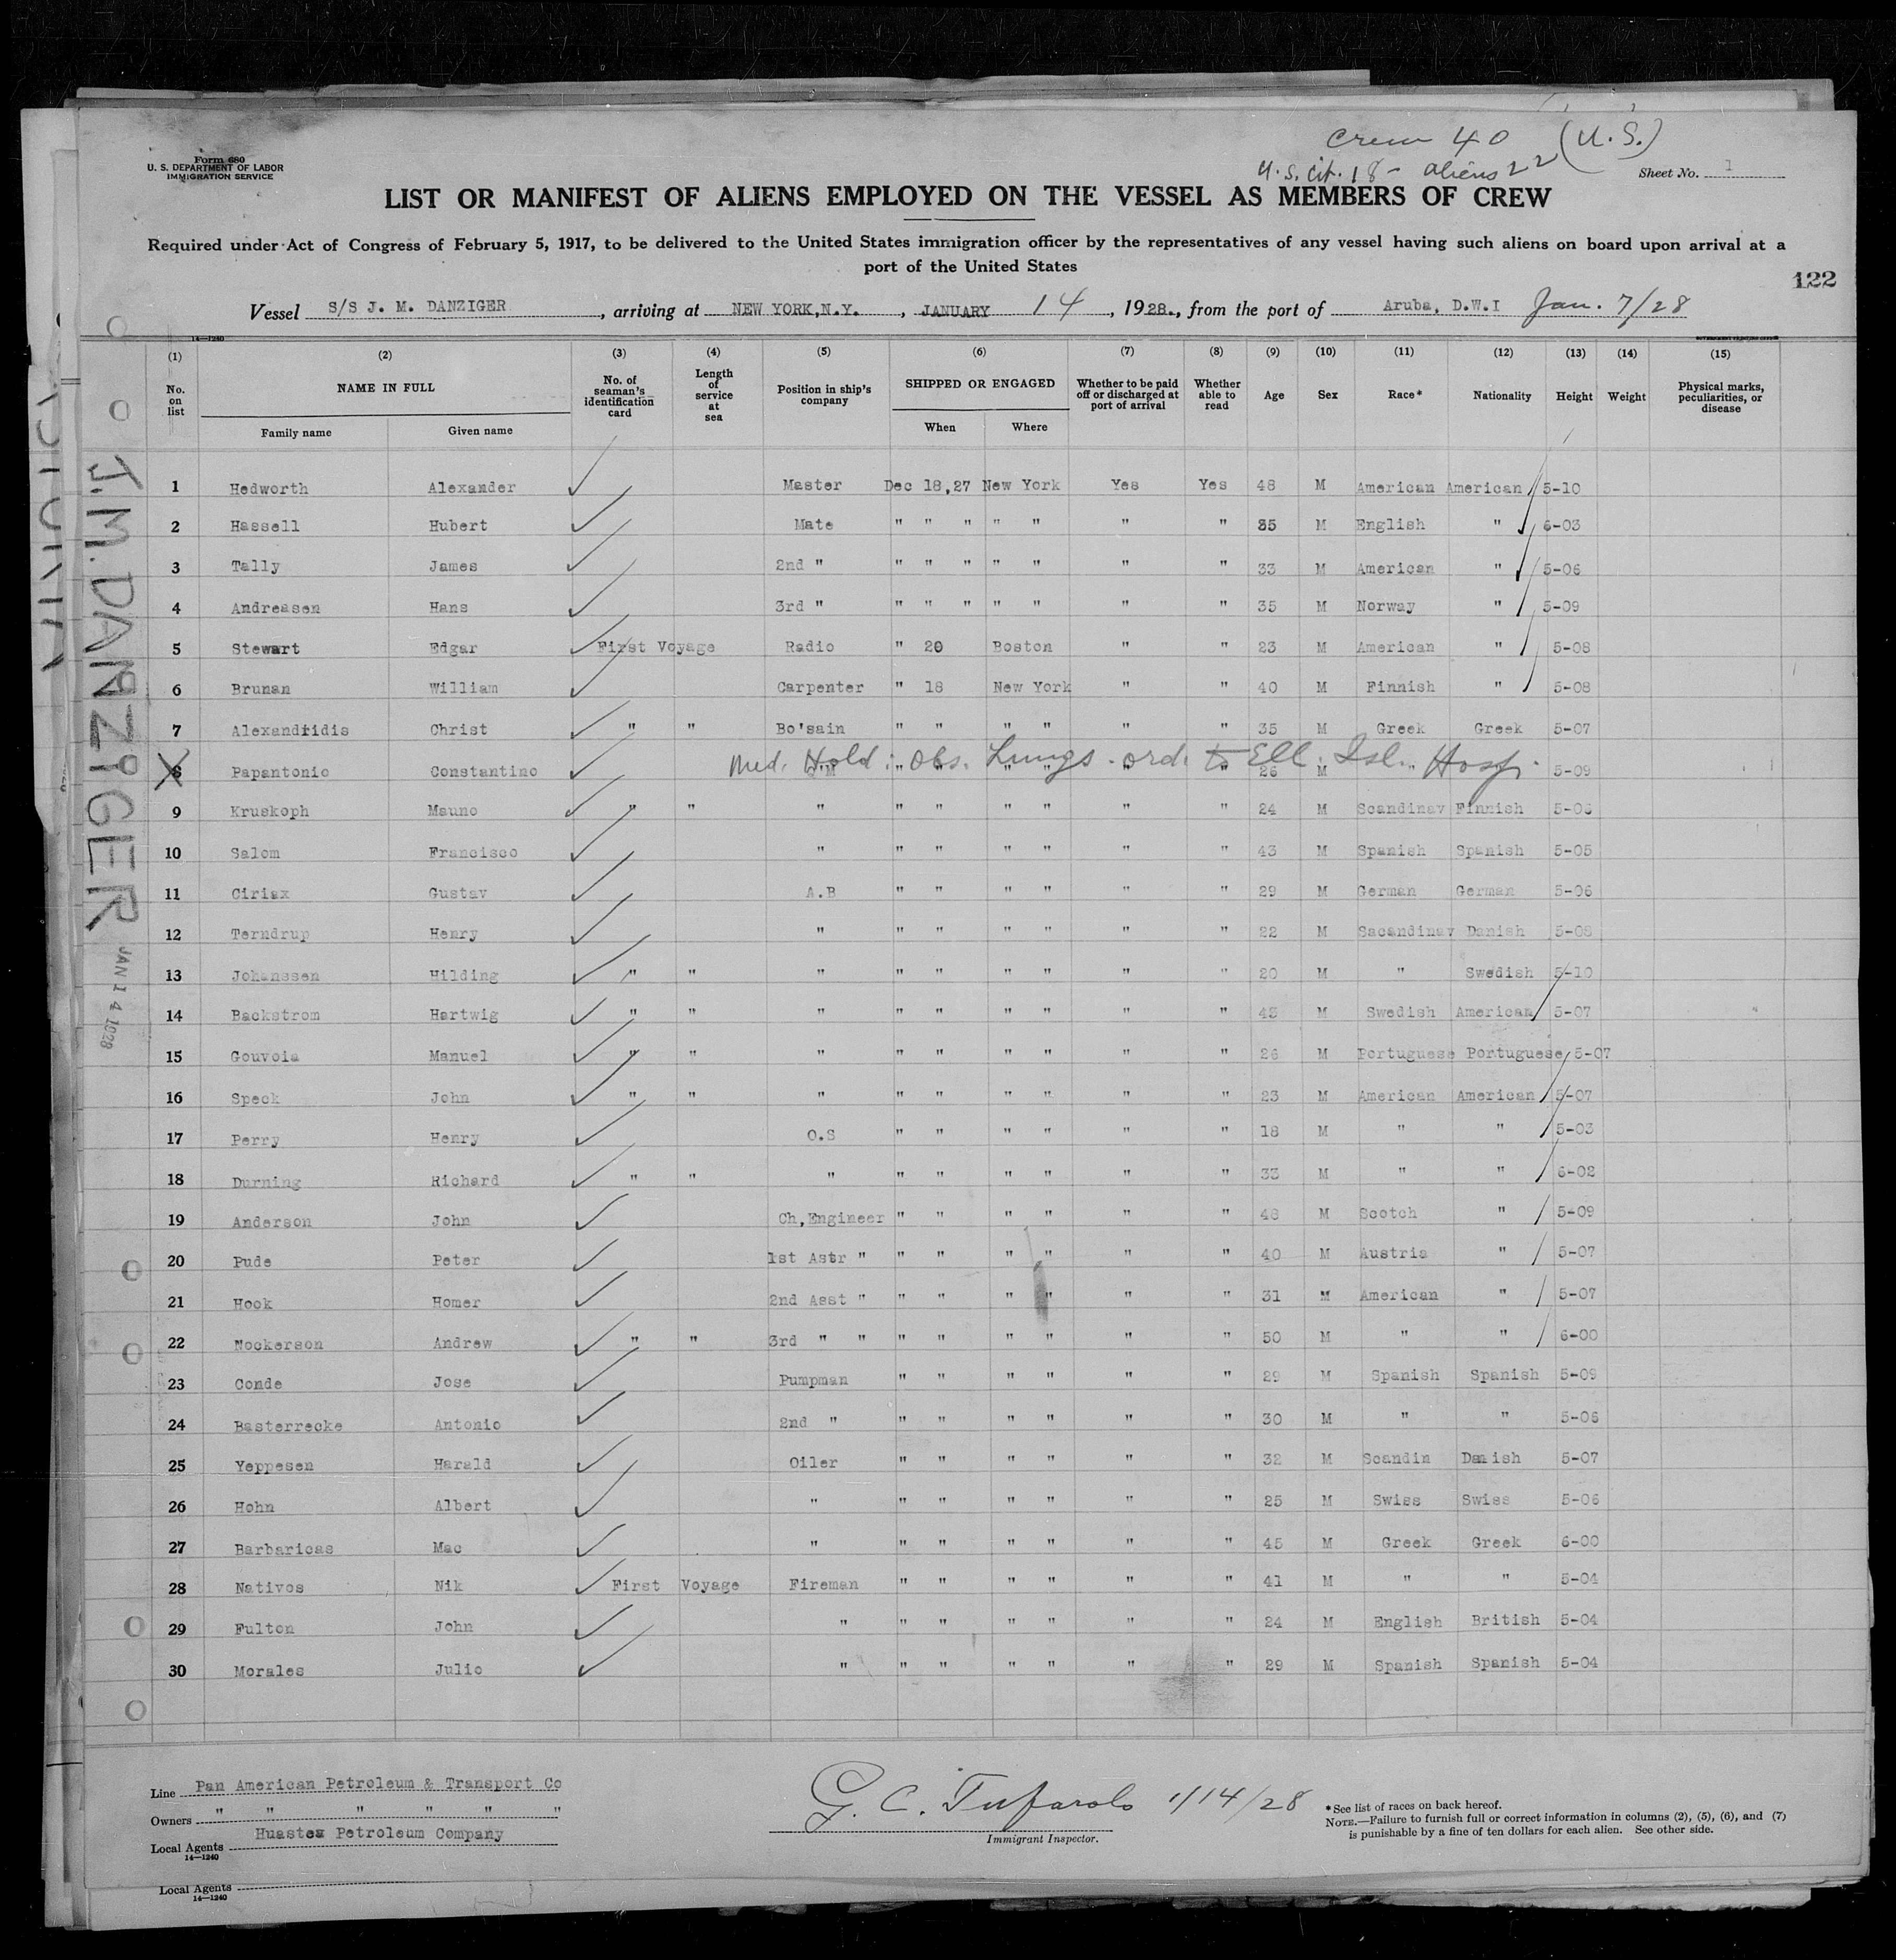 Crew 40 (U.S.)
U.S. Cit. 18 - aliens 22
Form 680
U. S. DEPARTMENT OF LABOR
IMMIGRATION SERVICE
Sheet No. 1
LIST OR MANIFEST OF ALIENS EMPLOYED ON THE VESSEL AS MEMBERS OF CREW
Required under Act of Congress of February 5, 1917, to be delivered to the United States immigration officer by the representatives of any vessel having such aliens on board upon arrival at a
port of the United States
122
Vessel S/S J. M. DANZIGER, arriving at NEW YORK,N.Y., JANUARY 14, 1928., from the port of Aruba, D.W.I Jan. 7/28
14—1240
(1) (2) (3) (4) (5) (6) (7) (8) (9) (10) (11) (12) (13) (14) (15)
No. on list NAME IN FULL Family name Given name No. of seaman's identification card Length of service at sea Position in ship's company SHIPPED OR ENGAGED When Where Whether to be paid off or discharged at port of arrival Whether able to read Age Sex Race* Nationality Height Weight Physical marks, peculiarities, or disease
1 Hedworth Alexander Master Dec 18,27 New York Yes Yes 48 M American American 5-10
2 Hassell Hubert Mate " " " " " " " 35 M English " 6-03
3 Tally James 2nd " " " " " " " " 33 M American " 5-06
4 Andreasen Hans 3rd " " " " " " " " 35 M Norway " 5-09
5 Stewart Edgar First Voyage Radio " 20 Boston " " 23 M American " 5-08
6 Brunan William Carpenter " 18 New York " " 40 M Finnish " 5-08
7 Alexandridis Christ " " Bo'sain " " " " " " 35 M Greek Greek 5-07
8 Papantonio Constantino Q'M " " " " " " 26 M " 5-09
Med. Hold: Obs. Lungs - ord. to Ell. Isl. Hosp.
9 Kruskoph Mauno " " " " " " " " " 24 M Scandinav Finnish 5-06
10 Salom Francisco " " " " " " " 43 M Spanish Spanish 5-05
11 Ciriax Gustav A.B " " " " " " 29 M German German 5-06
12 Terndrup Henry " " " " " " " 22 M Sacandinav Danish 5-08
13 Johanssen Hilding " " " " " " " " " 20 M " Swedish 5-10
14 Backstrom Hartwig " " " " " " " " " 45 M Swedish American 5-07
15 Gouvoia Manuel " " " " " " " " " 26 M Portuguese Portuguese 5-07
16 Speck John " " " " " " " " " 23 M American American 5-07
17 Perry Henry O.S " " " " " " 18 M " " 5-03
18 Durning Richard " " " " " " " " " 33 M " " 6-02
19 Anderson John Ch,Engineer " " " " " " 48 M Scotch " 5-09
20 Pude Peter 1st Astr " " " " " " " 40 M Austria " 5-07
21 Hook Homer 2nd Asst " " " " " " " 31 M American " 5-07
22 Nockerson Andrew " " 3rd " " " " " " " " 50 M " " 6-00
23 Conde Jose Pumpman " " " " " " 29 M Spanish Spanish 5-09
24 Basterrecke Antonio 2nd " " " " " " " 30 M " " 5-06
25 Yeppesen Harald Oiler " " " " " " 32 M Scandin Danish 5-07
26 Hohn Albert " " " " " " " 25 M Swiss Swiss 5-06
27 Barbaricas Mac " " " " " " " 45 M Greek Greek 6-00
28 Nativos Nik First Voyage Fireman " " " " " " 41 M " " 5-04
29 Fulton John " " " " " " " 24 M English British 5-04
30 Morales Julio " " " " " " " 29 M Spanish Spanish 5-04
J.M.DANZIGER
JAN 14 1928
Line Pan American Petroleum & Transport Co
Owners " " " " " "
Local Agents Huasteca Petroleum Company
14—1240
G. C. Tufarolo 1/14/28
Immigrant Inspector.
*See list of races on back hereof.
NOTE.—Failure to furnish full or correct information in columns (2), (5), (6), and (7)
is punishable by a fine of ten dollars for each alien. See other side.
Local Agents
14—1240